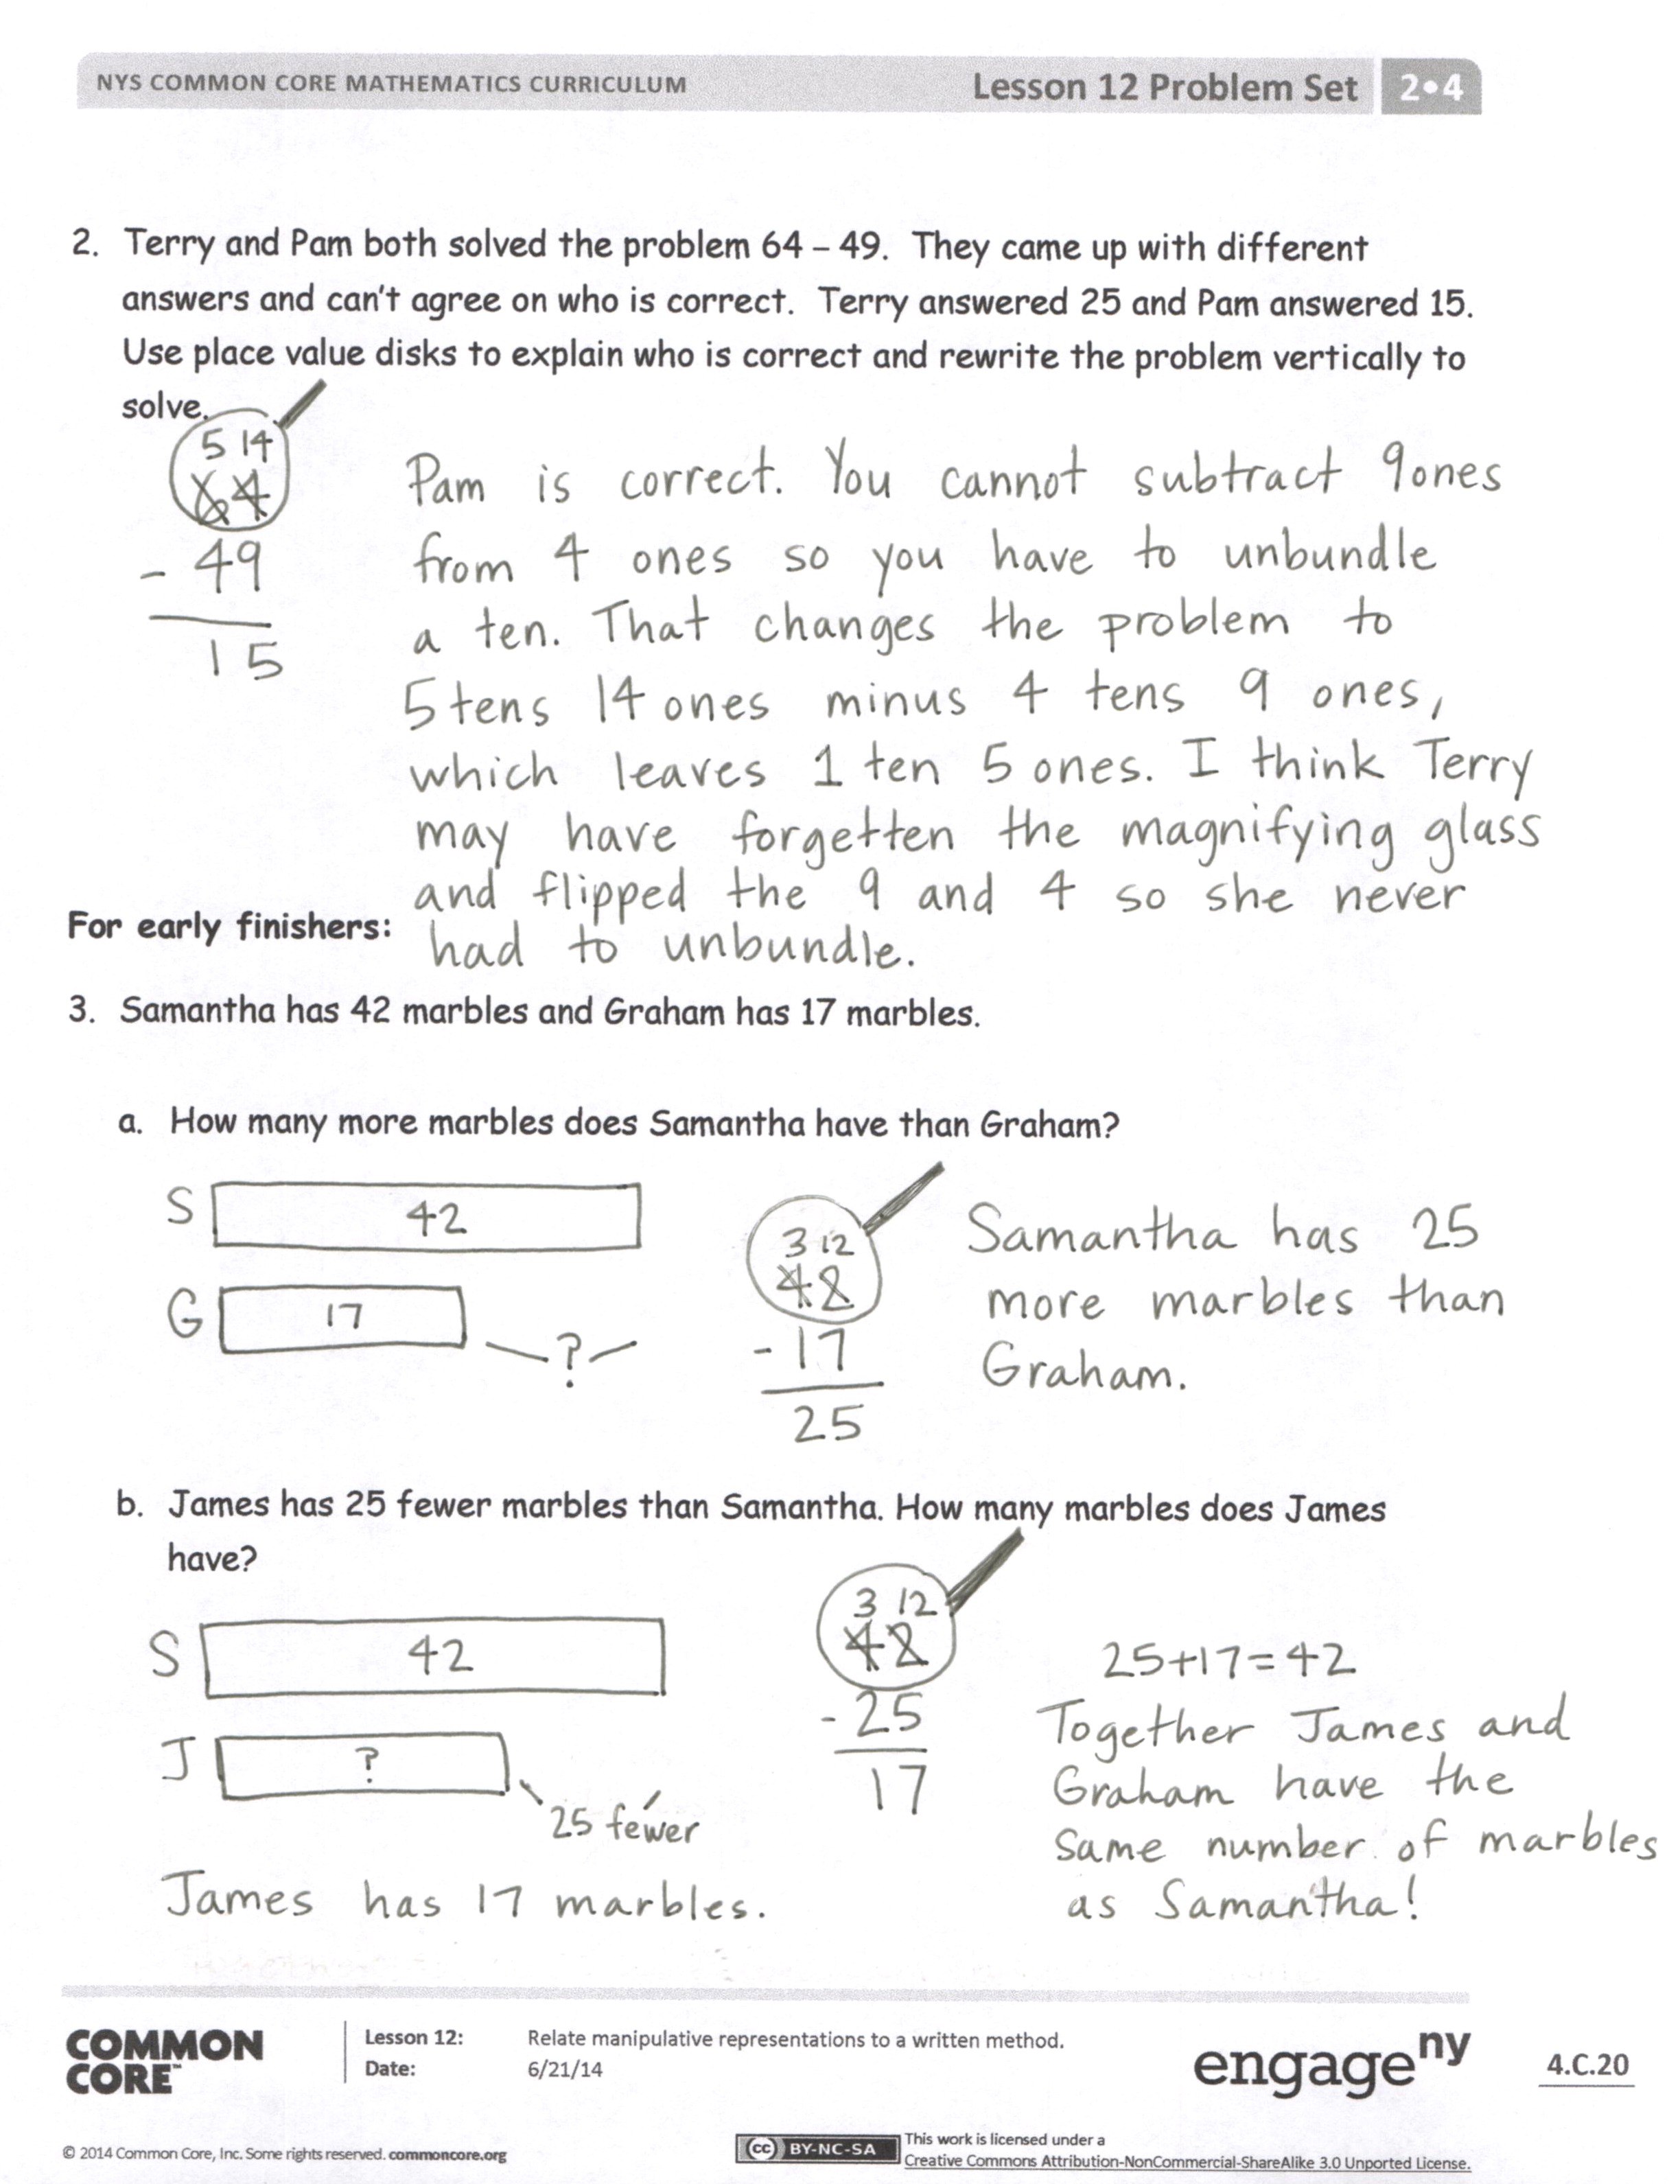 NYS COMMON CORE MATHEMATICS CURRICULUM
Lesson 12 Problem Set
2•4
2. Terry and Pam both solved the problem 64 – 49. They came up with different
answers and can't agree on who is correct. Terry answered 25 and Pam answered 15.
Use place value disks to explain who is correct and rewrite the problem vertically to
solve.
5 14
64
- 49
15
Pam is correct. You cannot subtract 9 ones
from 4 ones so you have to unbundle
a ten. That changes the problem to
5 tens 14 ones minus 4 tens 9 ones,
which leaves 1 ten 5 ones. I think Terry
may have forgetten the magnifying glass
and flipped the 9 and 4 so she never
had to unbundle.
For early finishers:
3. Samantha has 42 marbles and Graham has 17 marbles.
a. How many more marbles does Samantha have than Graham?
S 42
G 17
?
3 12
42
- 17
25
Samantha has 25
more marbles than
Graham.
b. James has 25 fewer marbles than Samantha. How many marbles does James
have?
S 42
J ?
25 fewer
3 12
42
- 25
17
25+17=42
Together James and
Graham have the
same number of marbles
as Samantha!
James has 17 marbles.
COMMON
CORE™
Lesson 12: Relate manipulative representations to a written method.
Date: 6/21/14
engage ny
4.C.20
© 2014 Common Core, Inc. Some rights reserved. commoncore.org
cc BY-NC-SA
This work is licensed under a
Creative Commons Attribution-NonCommercial-ShareAlike 3.0 Unported License.